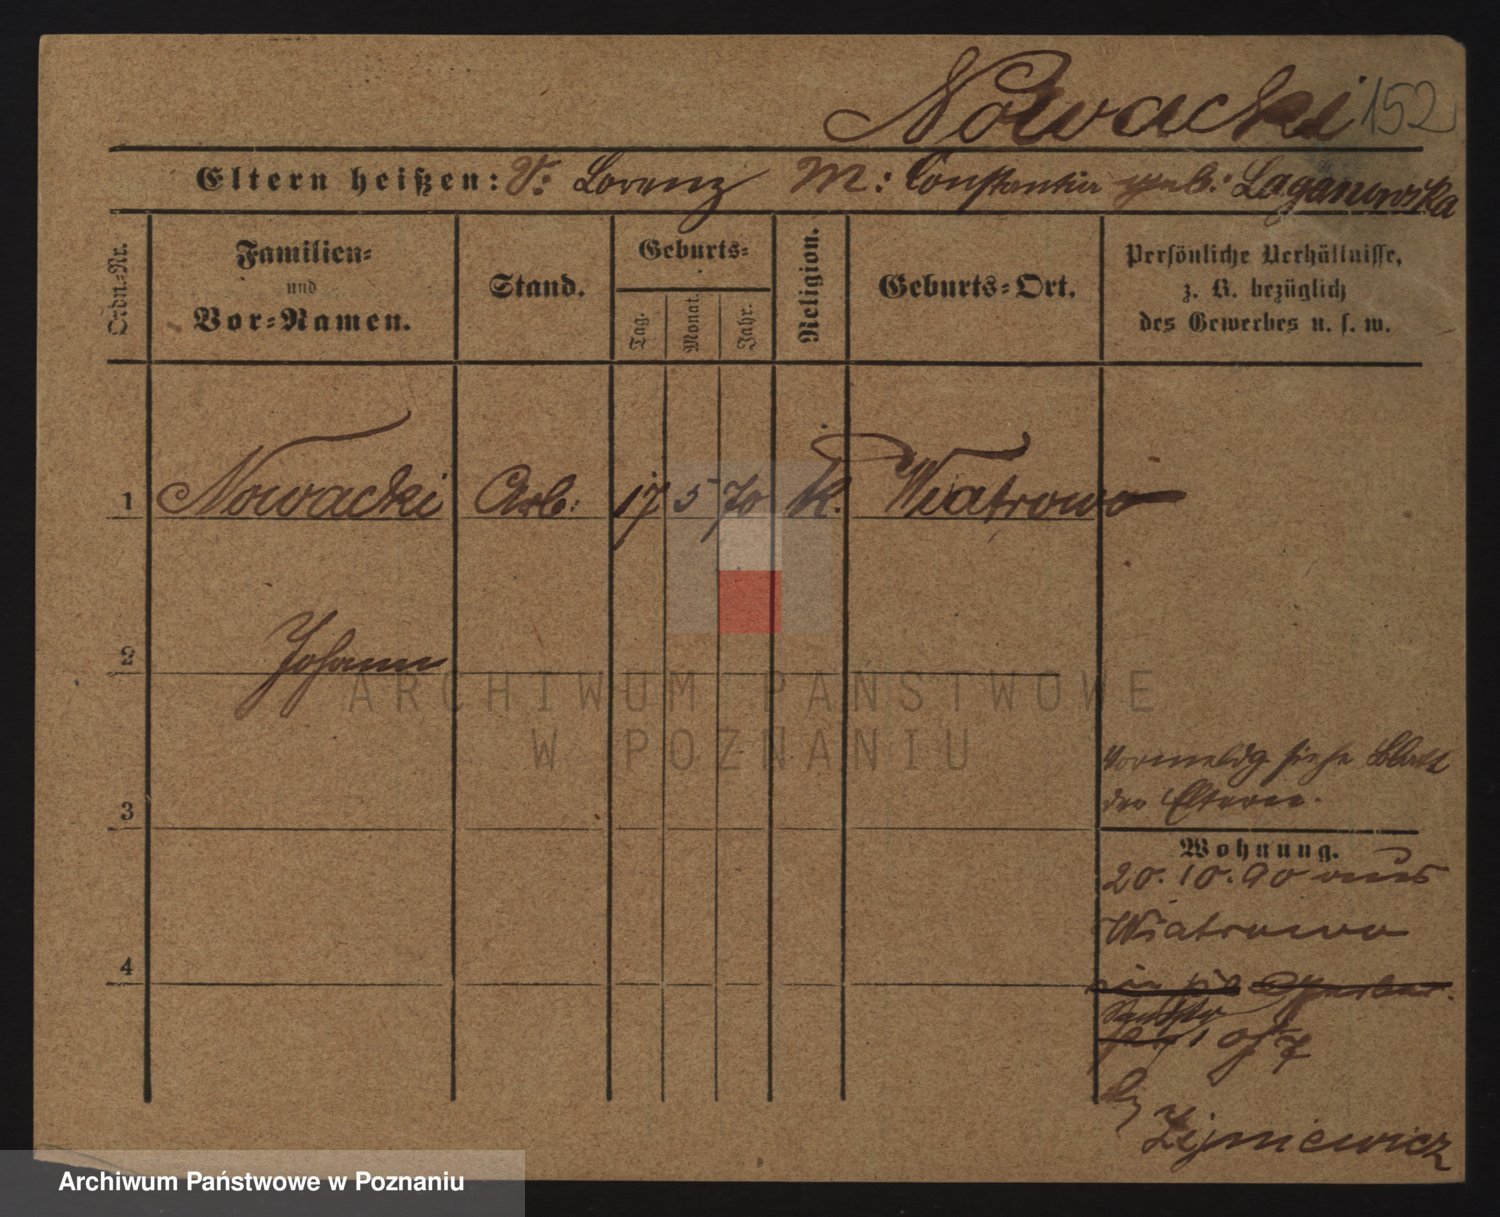 Nowacki 152
Eltern heißen: V: Lorenz M: Constantia geb: Laganowska
Ordn.-Nr.
Familien-
und
Vor-Namen.
Stand.
Geburts-
Tag.
Monat.
Jahr.
Religion.
Geburts-Ort.
Persönliche Verhältnisse,
z. B. bezüglich
des Gewerbes u. s. w.
1 Nowacki Arb: 17 5 70 K. Wiatrowo
2 Johann
3
4
Vormeldg siehe Blatt
der Eltern.
Wohnung.
20.10.90 aus
Wiatrowo
by
Zejmiewicz
ARCHIWUM PAŃSTWOWE
W POZNANIU
Archiwum Państwowe w Poznaniu